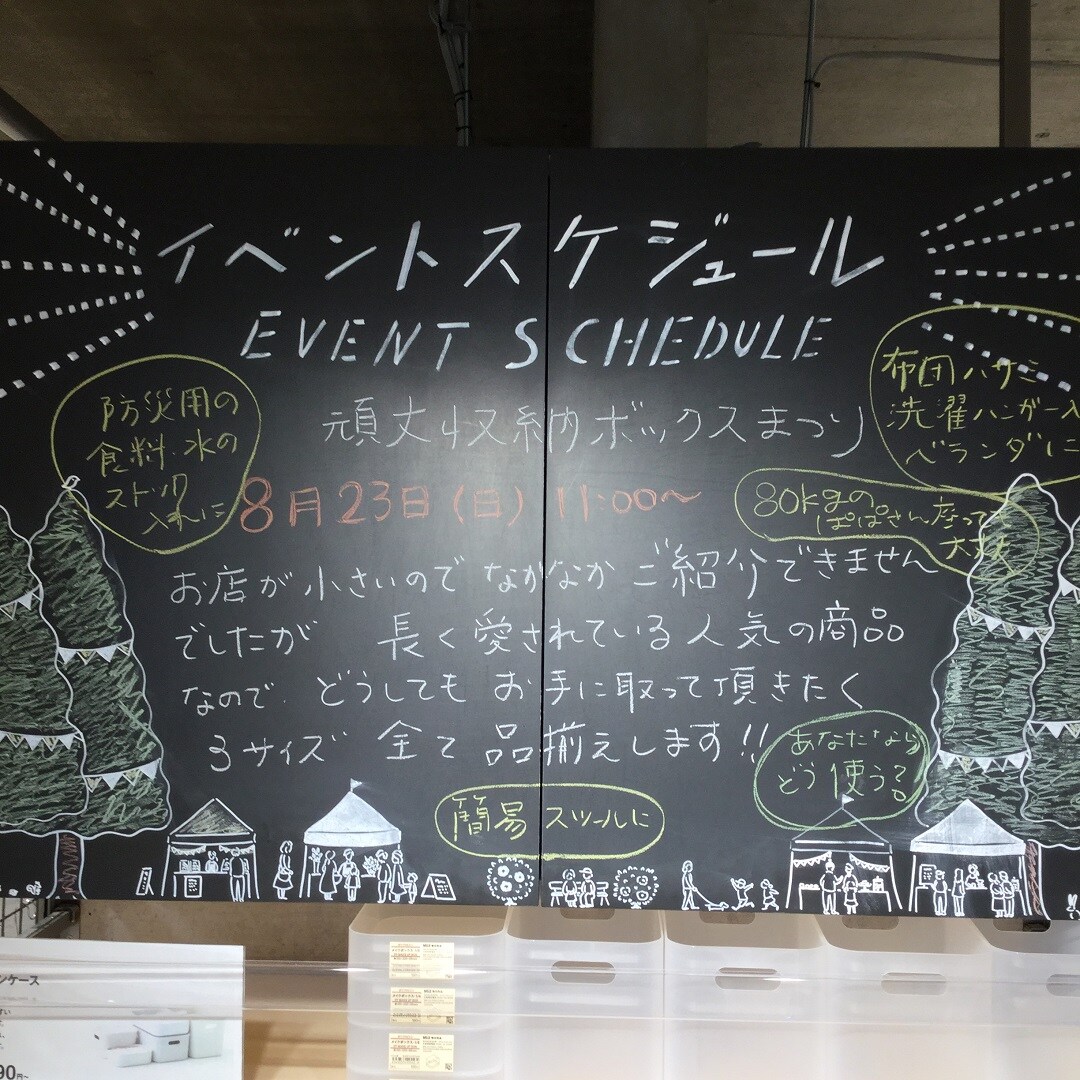 イベントスケジュール
EVENT SCHEDULE
防災用の
食料・水の
ストック
入れに
頑丈収納ボックスまつり
8月23日(日) 11:00〜
布団ハサミ
洗濯ハンガー入
ベランダに
80kgの
ぱぱさん座って
大丈夫
お店が小さいのでなかなかご紹介できません
でしたが 長く愛されている人気の商品
なので、どうしてもお手に取って頂きたく
3サイズ 全て品揃えします!!
あなたなら
どう使う?
簡易スツールに
ンケース
90円~